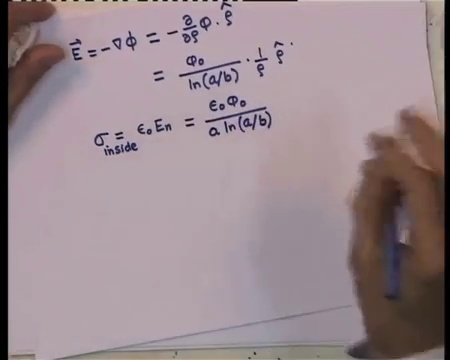 E⃗ = -∇Φ = - ∂/∂ρ Φ · ρ̂
= Φ₀/ln(a/b) · 1/ρ ρ̂
σ inside = ε₀ Eₙ = ε₀ Φ₀ / a ln(a/b)